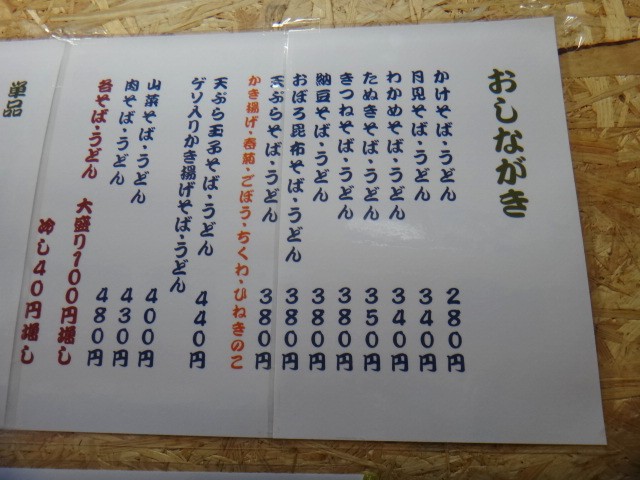 おしながき
かけそば・うどん 280円
月見そば・うどん 340円
わかめそば・うどん 340円
たぬきそば・うどん 350円
きつねそば・うどん 380円
納豆そば・うどん 380円
おぼろ昆布そば・うどん 380円
天ぷらそば・うどん 380円
かき揚げ・春菊・ごぼう・ちくわ・ひねきのこ
天ぷら玉子そば・うどん 440円
ゲソ入りかき揚げそば・うどん 400円
山菜そば・うどん 430円
肉そば・うどん 480円
各そば・うどん 大盛り100円増し
冷し40円増し
単品